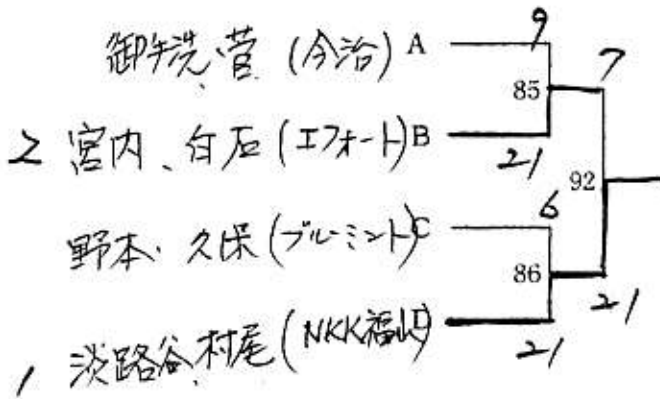 御手洗、菅 (今治) A 9
85 7
2 宮内、白石 (エフォート) B 21
92
野本、久保 (ブルーミント) C 6
86 21
1 淡路谷、村尾 (NKK福山) D 21